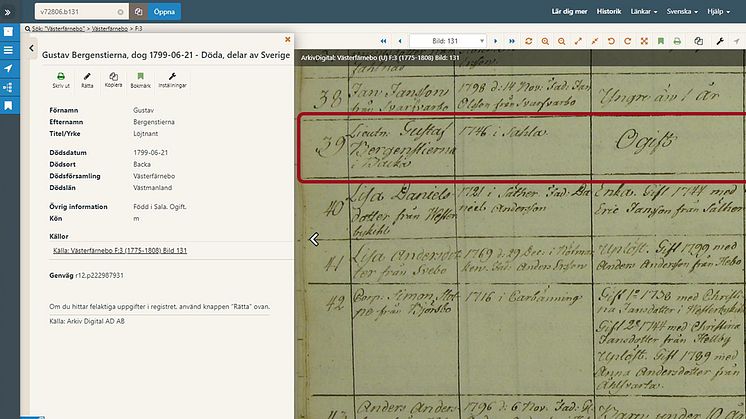 v72806.b131
Öppna
Lär dig mer Historik Länkar Svenska Hjälp
Sök: "Västerfärnebo" > Västerfärnebo > F:3
Bild: 131
ArkivDigital: Västerfärnebo (U) F:3 (1775-1808) Bild: 131
Gustav Bergenstierna, dog 1799-06-21 - Döda, delar av Sverige
Skriv ut Rätta Kopiera Bokmärk Inställningar
Förnamn Gustav
Efternamn Bergenstierna
Titel/Yrke Löjtnant
Dödsdatum 1799-06-21
Dödsort Backa
Dödsförsamling Västerfärnebo
Dödslän Västmanland
Övrig information Född i Sala. Ogift.
Kön m
Källor
Källa: Västerfärnebo F:3 (1775-1808) Bild 131
Genväg r12.p222987931
Om du hittar felaktiga uppgifter i registret. använd knappen "Rätta" ovan.
Källa: Arkiv Digital AD AB
38 Jan Jansson 1798 d: 14 Nov: Fad: Jan
från Svarfvarbo Olsson från Svarfvarbo Yngre än 1 år
39 Lieutn: Gustaf 1746 i Sahla. Ogift
Bergenstierna
i Backa
40 Lisa Daniels 1721 i Säther. Fad: Da Enka. Gift 1744 med
dotter från neel Andersson Eric Jansson från Säther
41 Lisa Andersdot 1769 d: 29 Dec: i Uplöst. Gift 1799 med
ter från Svebo Fad: Anders Anders Andersson från Hebo
42 Corp: Simon 1716 i Gift 1º 1738 med Christi
pne från Björsbo na Jansdotter i
Gift 2º 1744 med Christina
Jansdotter från Hellby
Uplöst. Gift 1789 med
Anna Andersdotter från
43 Anders Anders 1796 d: 6 Nov: Fad: Barn under 10 år